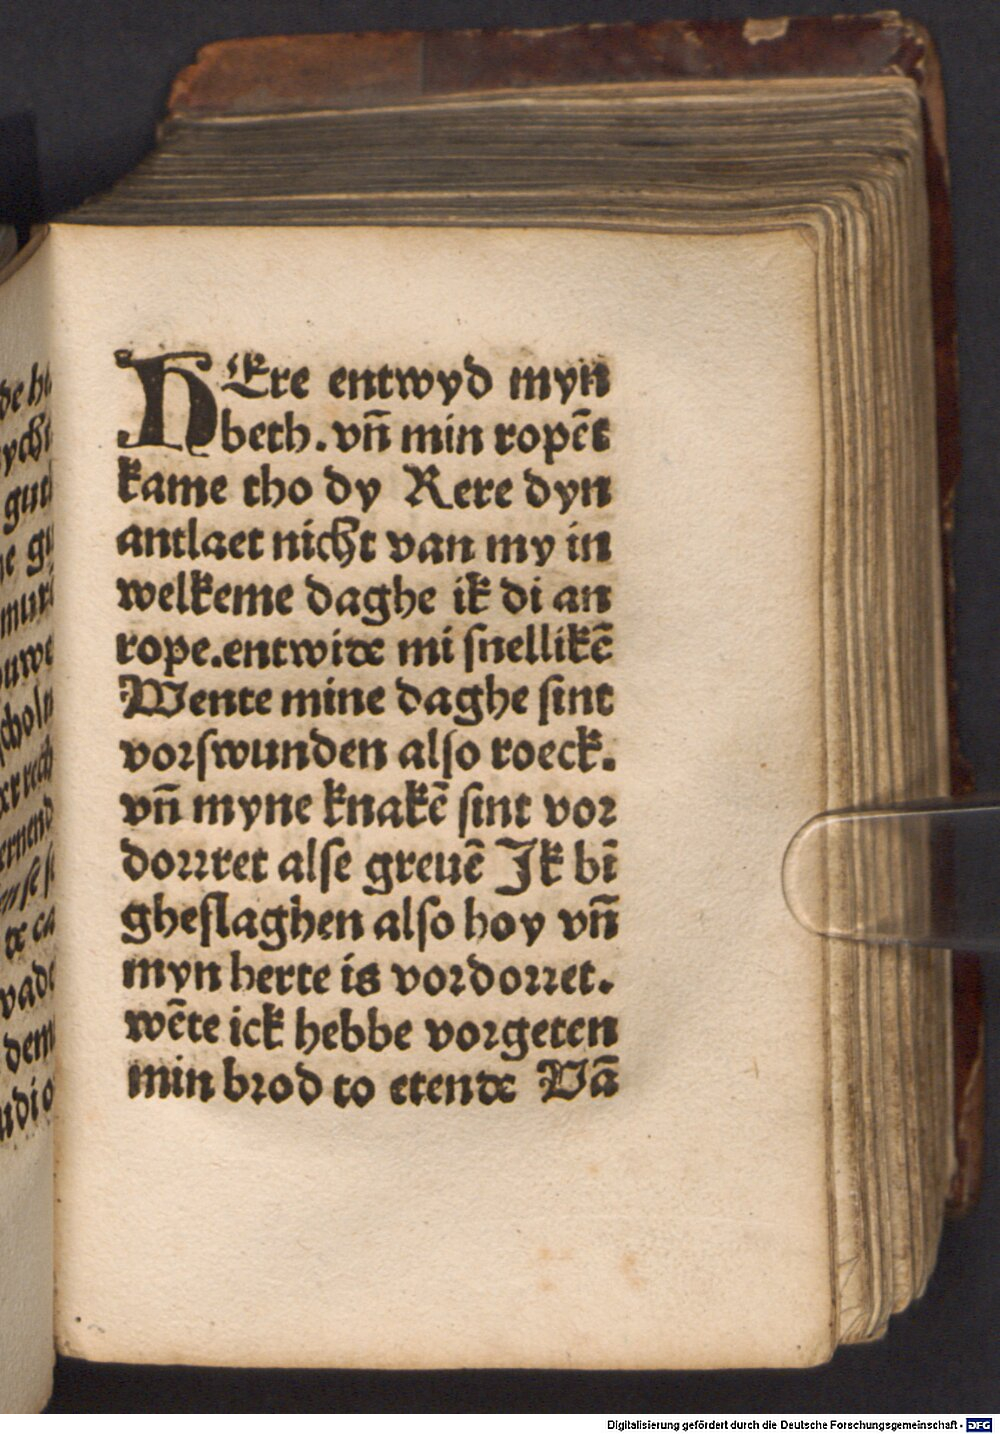 HEre entwyd myn
beth. vn̄ min ropēt
kame tho dy Kere dyn
antlaet nicht van my in
welkeme daghe ik di an
rope.entwide mi ſnellikē
Wente mine daghe ſint
vorſwunden alſo roeck.
vn̄ myne knakē ſint vor
dorret alſe greuē Jk bī
gheſlaghen alſo hoy vn̄
myn herte is vordorret.
wēte ick hebbe vorgeten
min brod to etende Vā
Digitalisierung gefördert durch die Deutsche Forschungsgemeinschaft - DFG